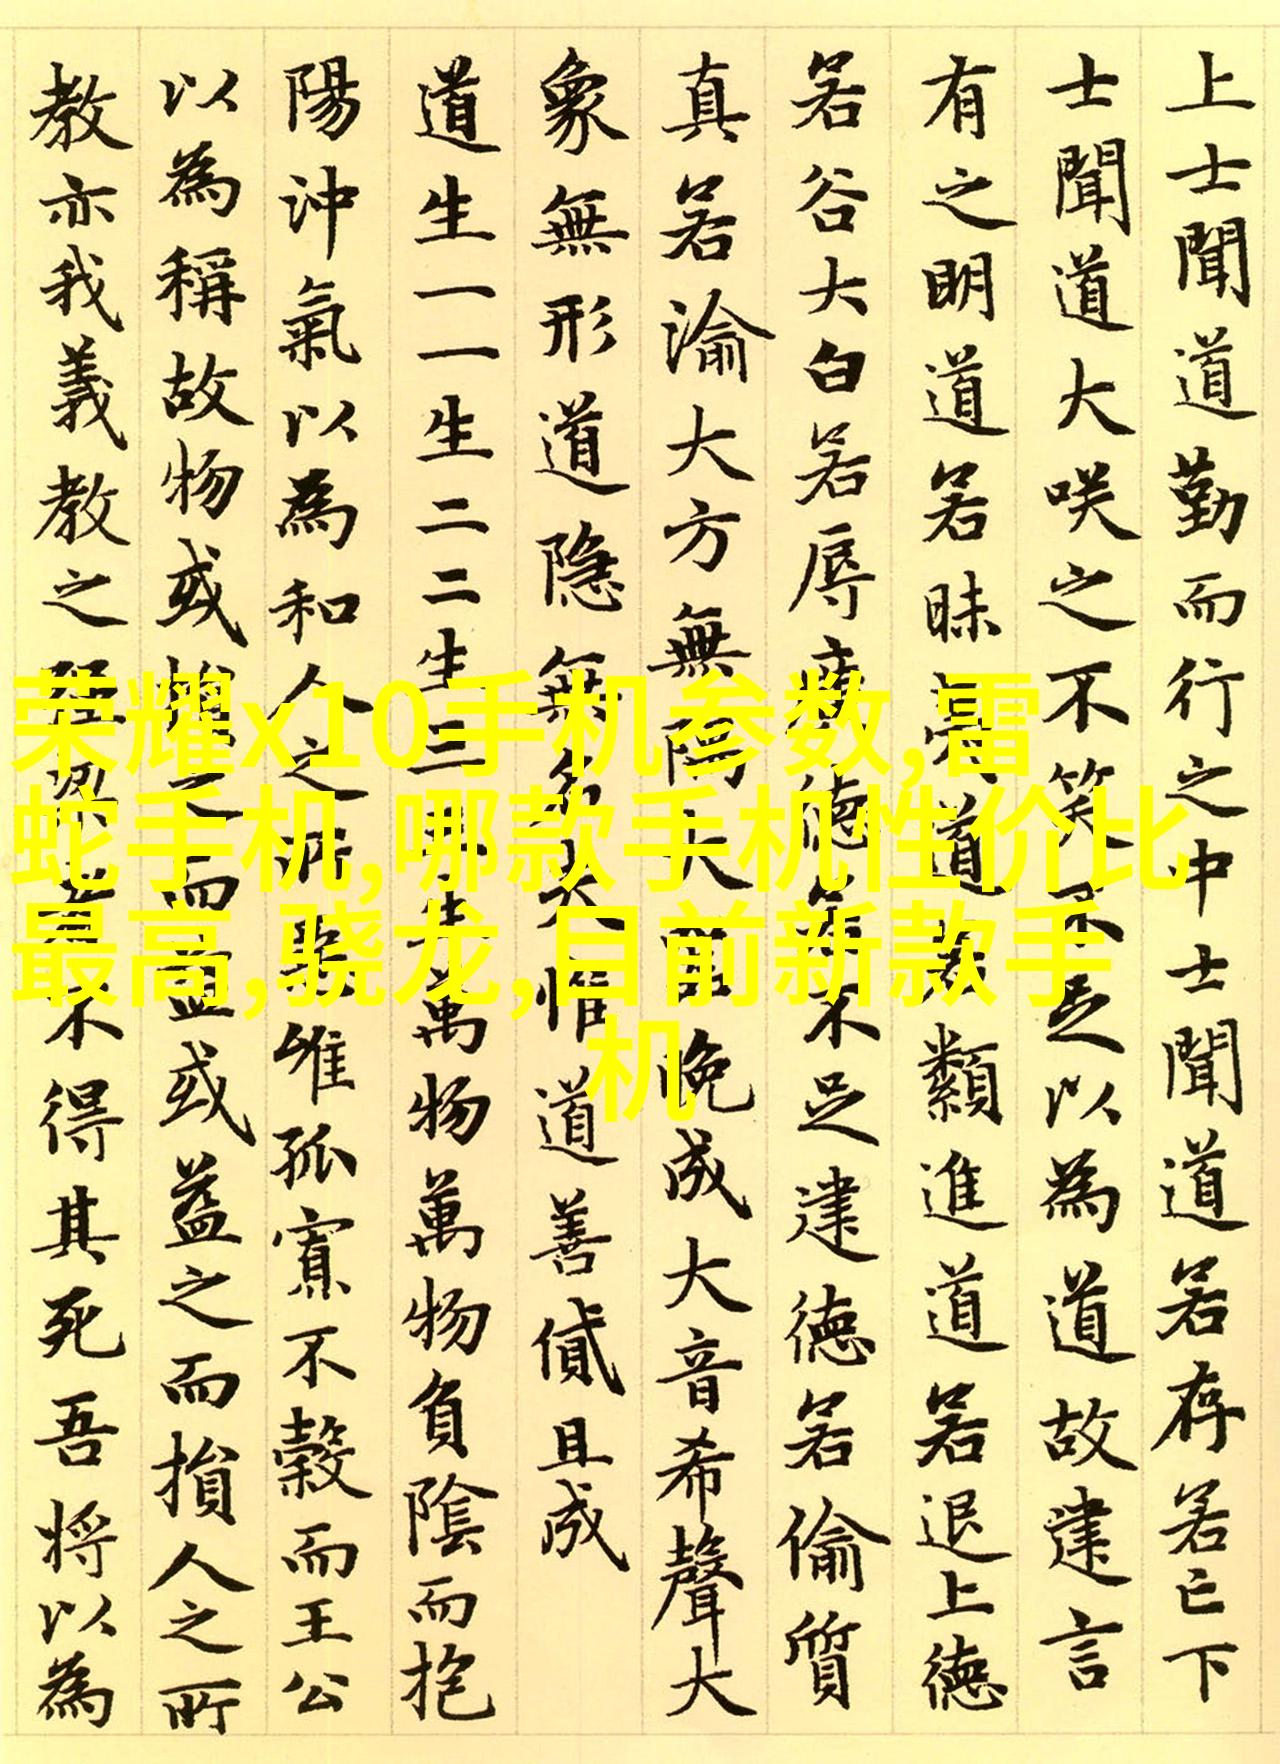 上士聞道勤而行之中士聞道若存若亡下
士聞道大咲之不笑不足以為道故建言
有之明道若昧夷道若類進道若退上德
若谷大白若辱廣德若不足建德若偷質
真若渝大方無隅大器晚成大音希聲大
象無形道隐無名夫惟道善貸且成
道生一一生二二生三三生萬物萬物負陰而抱
陽沖氣以為和人之所惡惟孤寡不穀而王公
以為稱故物或損之而益或益之而損人之所
教亦我義教之强梁者不得其死吾将以為
荣耀x10手机参数,雷
蛇手机,哪款手机性价比
最高,骁龙,目前新款手
机